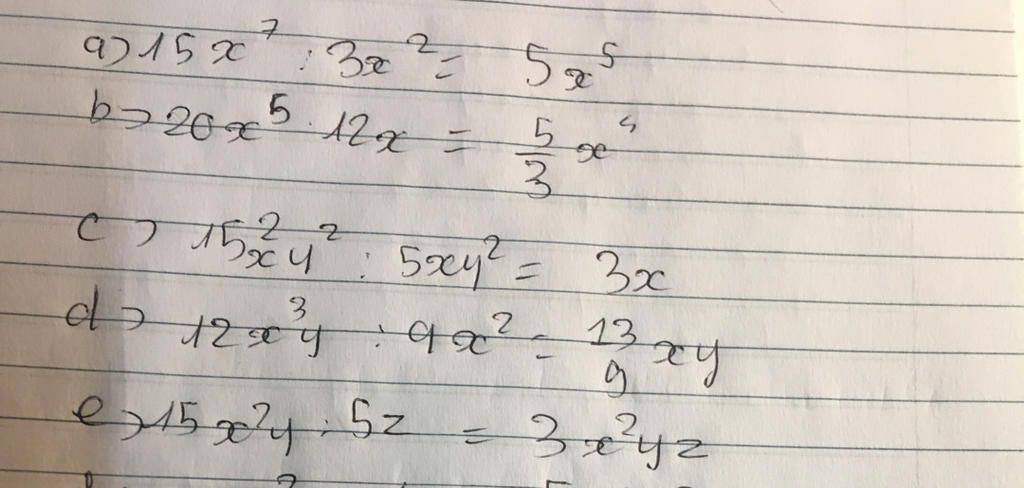 a) 15x⁷ : 3x² = 5x⁵
b) 20x⁵ : 12x = 5/3 x⁴
c) 15x²y² : 5xy² = 3x
d) 12x³y : 9x² = 13/9 xy
e) 15x²y : 5z = 3x²yz